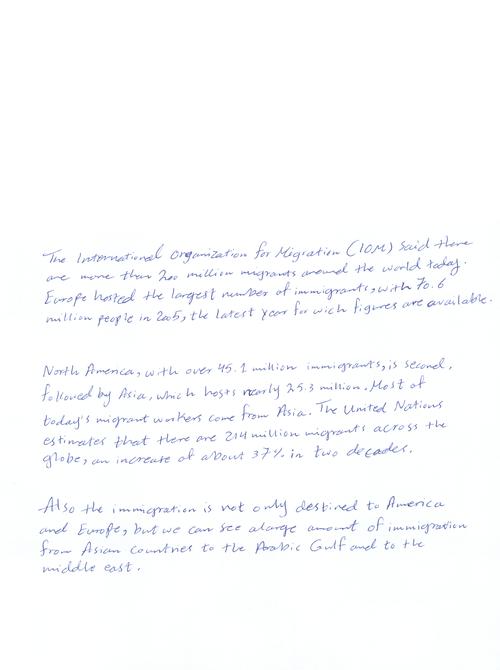 The International Organization for Migration (IOM) Said there
are more than 200 million migrants around the world today.
Europe hosted the largest number of immigrants, with 70.6
million people in 2005, the latest year for wich figures are available.
North America, with over 45.1 million immigrants, is second,
followed by Asia, which hosts nearly 25.3 million. Most of
today's migrant workers come from Asia. The United Nations
estimates that there are 214 million migrants across the
globe, an increase of about 37% in two decades.
Also the immigration is not only destined to America
and Europe, but we can see alarge amount of immigration
from Asian countries to the Arabic Gulf and to the
middle east.